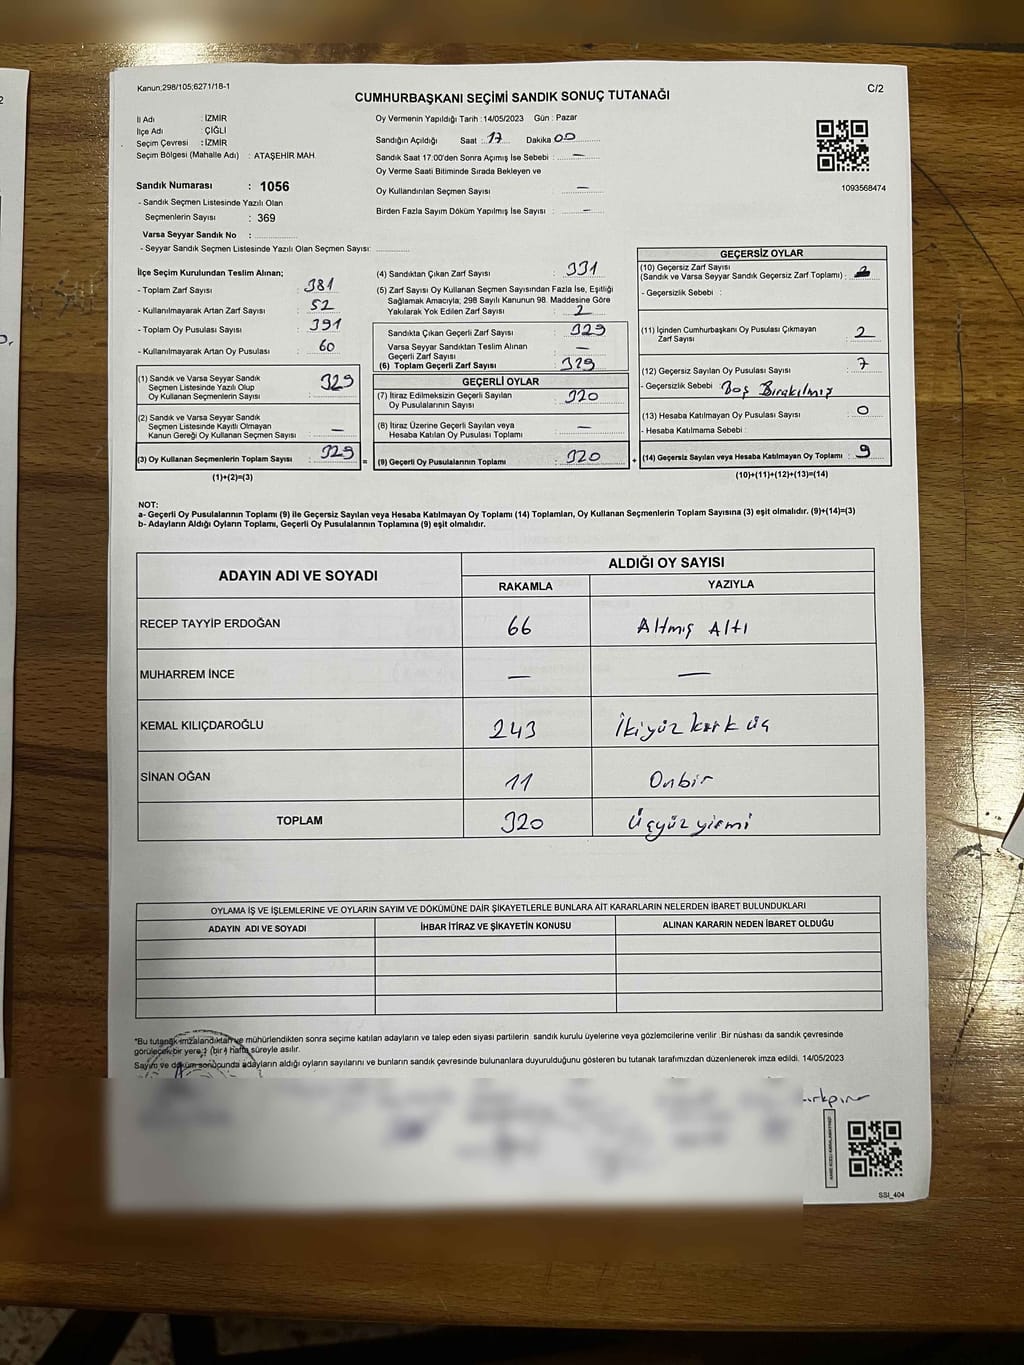 Kanun;298/105;6271/18-1
C/2
CUMHURBAŞKANI SEÇİMİ SANDIK SONUÇ TUTANAĞI
İl Adı : İZMİR
İlçe Adı : ÇİĞLİ
Seçim Çevresi : İZMİR
Seçim Bölgesi (Mahalle Adı) : ATAŞEHİR MAH.
Sandık Numarası : 1056
- Sandık Seçmen Listesinde Yazılı Olan
Seçmenlerin Sayısı : 369
Varsa Seyyar Sandık No :
- Seyyar Sandık Seçmen Listesinde Yazılı Olan Seçmen Sayısı:
Oy Vermenin Yapıldığı Tarih :14/05/2023 Gün : Pazar
Sandığın Açıldığı Saat : 17 Dakika 00
Sandık Saat 17:00'den Sonra Açımış İse Sebebi : —
Oy Verme Saati Bitiminde Sırada Bekleyen ve
Oy Kullandırılan Seçmen Sayısı : —
Birden Fazla Sayım Döküm Yapılmış İse Sayısı : —
1093568474
İlçe Seçim Kurulundan Teslim Alınan;
- Toplam Zarf Sayısı : 381
- Kullanılmayarak Artan Zarf Sayısı : 52
- Toplam Oy Pusulası Sayısı : 391
- Kullanılmayarak Artan Oy Pusulası : 60
(1) Sandık ve Varsa Seyyar Sandık
Seçmen Listesinde Yazılı Olup
Oy Kullanan Seçmenlerin Sayısı : 329
(2) Sandık ve Varsa Seyyar Sandık
Seçmen Listesinde Kayıtlı Olmayan
Kanun Gereği Oy Kullanan Seçmen Sayısı : —
(3) Oy Kullanan Seçmenlerin Toplam Sayısı : 329
(1)+(2)=(3)
=
(4) Sandıktan Çıkan Zarf Sayısı : 331
(5) Zarf Sayısı Oy Kullanan Seçmen Sayısından Fazla İse, Eşitliği
Sağlamak Amacıyla; 298 Sayılı Kanunun 98. Maddesine Göre
Yakılarak Yok Edilen Zarf Sayısı : 2
Sandıkta Çıkan Geçerli Zarf Sayısı : 329
Varsa Seyyar Sandıktan Teslim Alınan
Geçerli Zarf Sayısı : —
(6) Toplam Geçerli Zarf Sayısı : 329
GEÇERLİ OYLAR
(7) İtiraz Edilmeksizin Geçerli Sayılan
Oy Pusulalarının Sayısı : 320
(8) İtiraz Üzerine Geçerli Sayılan veya
Hesaba Katılan Oy Pusulası Toplamı : —
(9) Geçerli Oy Pusulalarının Toplamı : 320
+
GEÇERSİZ OYLAR
(10) Geçersiz Zarf Sayısı
(Sandık ve Varsa Seyyar Sandık Geçersiz Zarf Toplamı) :
- Geçersizlik Sebebi :
(11) İçinden Cumhurbaşkanı Oy Pusulası Çıkmayan
Zarf Sayısı : 2
(12) Geçersiz Sayılan Oy Pusulası Sayısı : 7
- Geçersizlik Sebebi : Boş Bırakılmış
(13) Hesaba Katılmayan Oy Pusulası Sayısı : 0
- Hesaba Katılmama Sebebi :
(14) Geçersiz Sayılan veya Hesaba Katılmayan Oy Toplamı : 9
(10)+(11)+(12)+(13)=(14)
NOT:
a- Geçerli Oy Pusulalarının Toplamı (9) ile Geçersiz Sayılan veya Hesaba Katılmayan Oy Toplamı (14) Toplamları, Oy Kullanan Seçmenlerin Toplam Sayısına (3) eşit olmalıdır. (9)+(14)=(3)
b- Adayların Aldığı Oyların Toplamı, Geçerli Oy Pusulalarının Toplamına (9) eşit olmalıdır.
ADAYIN ADI VE SOYADI
ALDIĞI OY SAYISI
RAKAMLA YAZIYLA
RECEP TAYYİP ERDOĞAN 66 Altmış Altı
MUHARREM İNCE — —
KEMAL KILIÇDAROĞLU 243 İkiyüz kırk üç
SİNAN OĞAN 11 Onbir
TOPLAM 320 Üçyüz yirmi
OYLAMA İŞ VE İŞLEMLERİNE VE OYLARIN SAYIM VE DÖKÜMÜNE DAİR ŞİKAYETLERLE BUNLARA AİT KARARLARIN NELERDEN İBARET BULUNDUKLARI
ADAYIN ADI VE SOYADI İHBAR İTİRAZ VE ŞİKAYETİN KONUSU ALINAN KARARIN NEDEN İBARET OLDUĞU
*Bu tutanak imzalandıktan ve mühürlendikten sonra seçime katılan adayların ve talep eden siyasi partilerin sandık kurulu üyelerine veya gözlemcilerine verilir .Bir nüshası da sandık çevresinde
görülecek bir yere 1 (bir) hafta süreyle asılır.
Sayım ve döküm sonucunda adayların aldığı oyların sayılarını ve bunların sandık çevresinde bulunanlara duyurulduğunu gösteren bu tutanak tarafımızdan düzenlenerek imza edildi. 14/05/2023
SSI_404